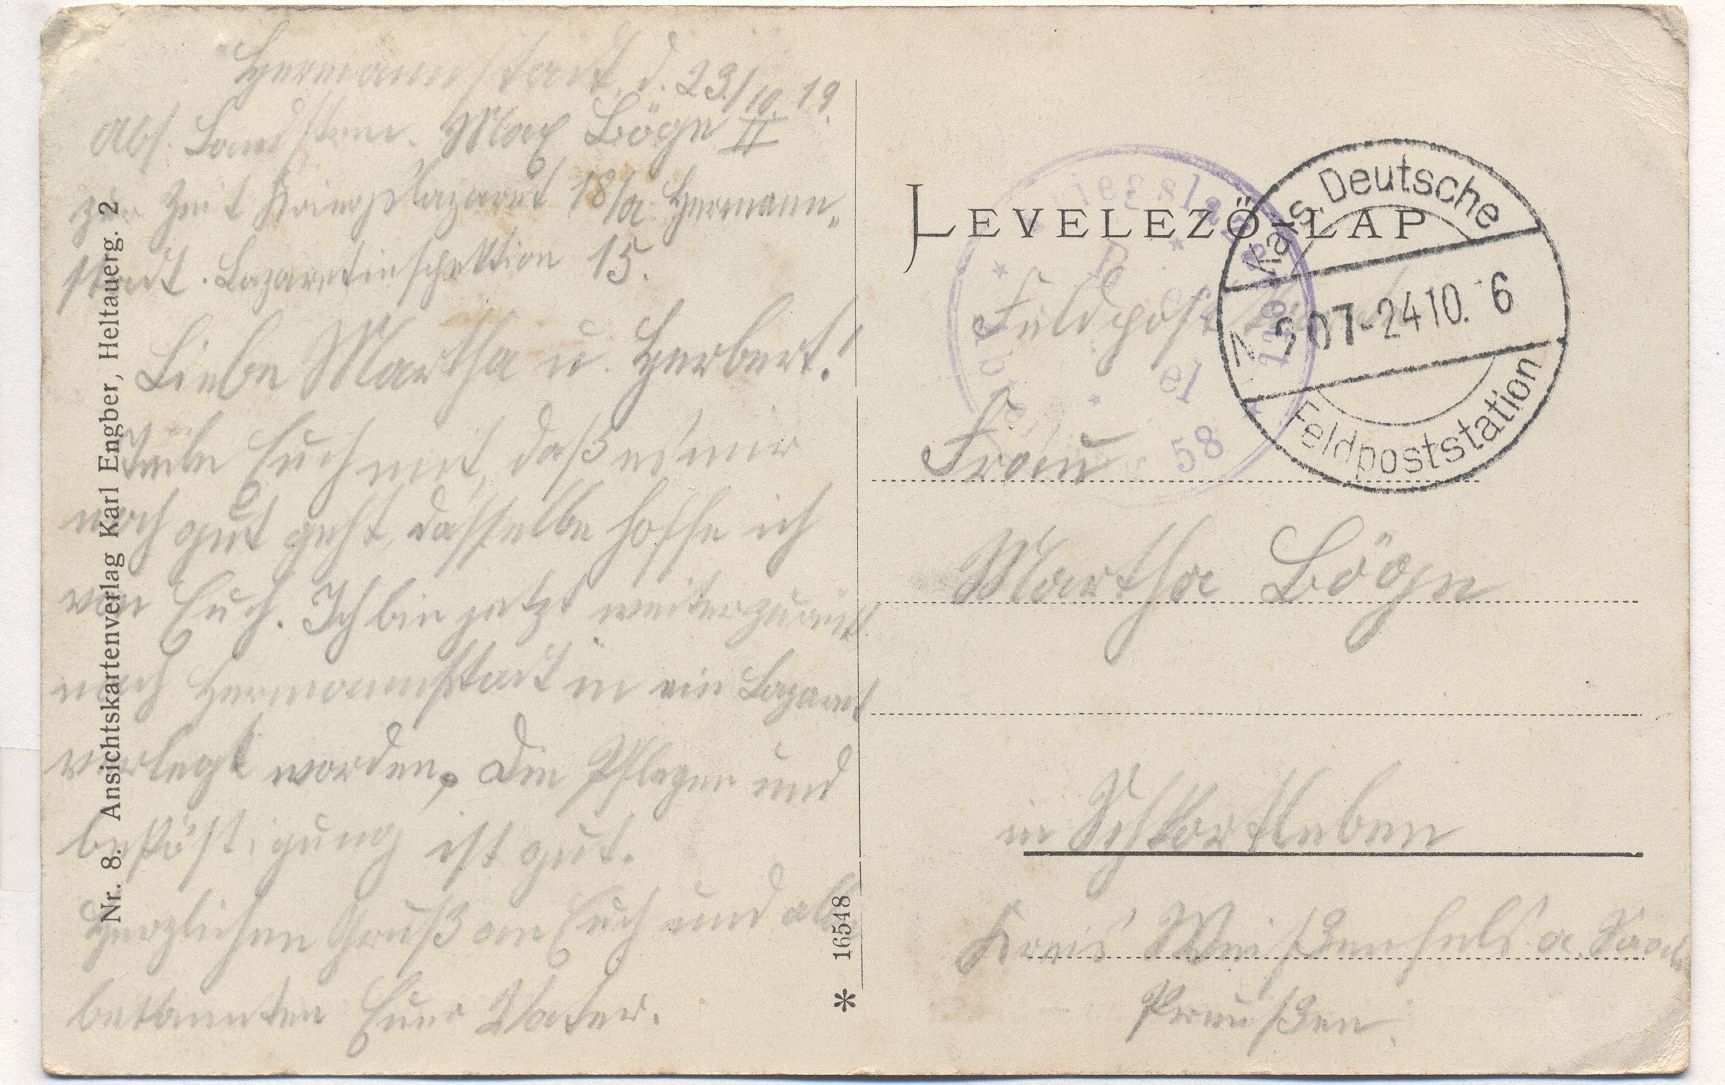 Hermannstadt, d. 23./10. 19
Abs. Landstrm. Max Böge II
zur Zeit Kriegslazaret 18/a Hermann„
stadt. Lazaretinspektion 15.
Liebe Martha u. Herbert!
Teile Euch mit, daß es mir
noch gut geht, dasselbe hoffe ich
von Euch. Ich bin jetzt weiter zurück
nach Hermannstadt in ein Lazaret
verlegt worden. Die Pflegen und
beköstigung ist gut.
Herzlichen Gruß an Euch und alle
bekannten Euer Vater.
Nr. 8. Ansichtskartenverlag Karl Engber, Heltauerg. 2
* 16548
LEVELEZŐ-LAP
Kais. Deutsche
207-2410. 6
Feldpoststation
58
Feldpost
Frau
Martha Böge
in Schkortleben
Kreis Weißenfels a. Saale
Preußen.